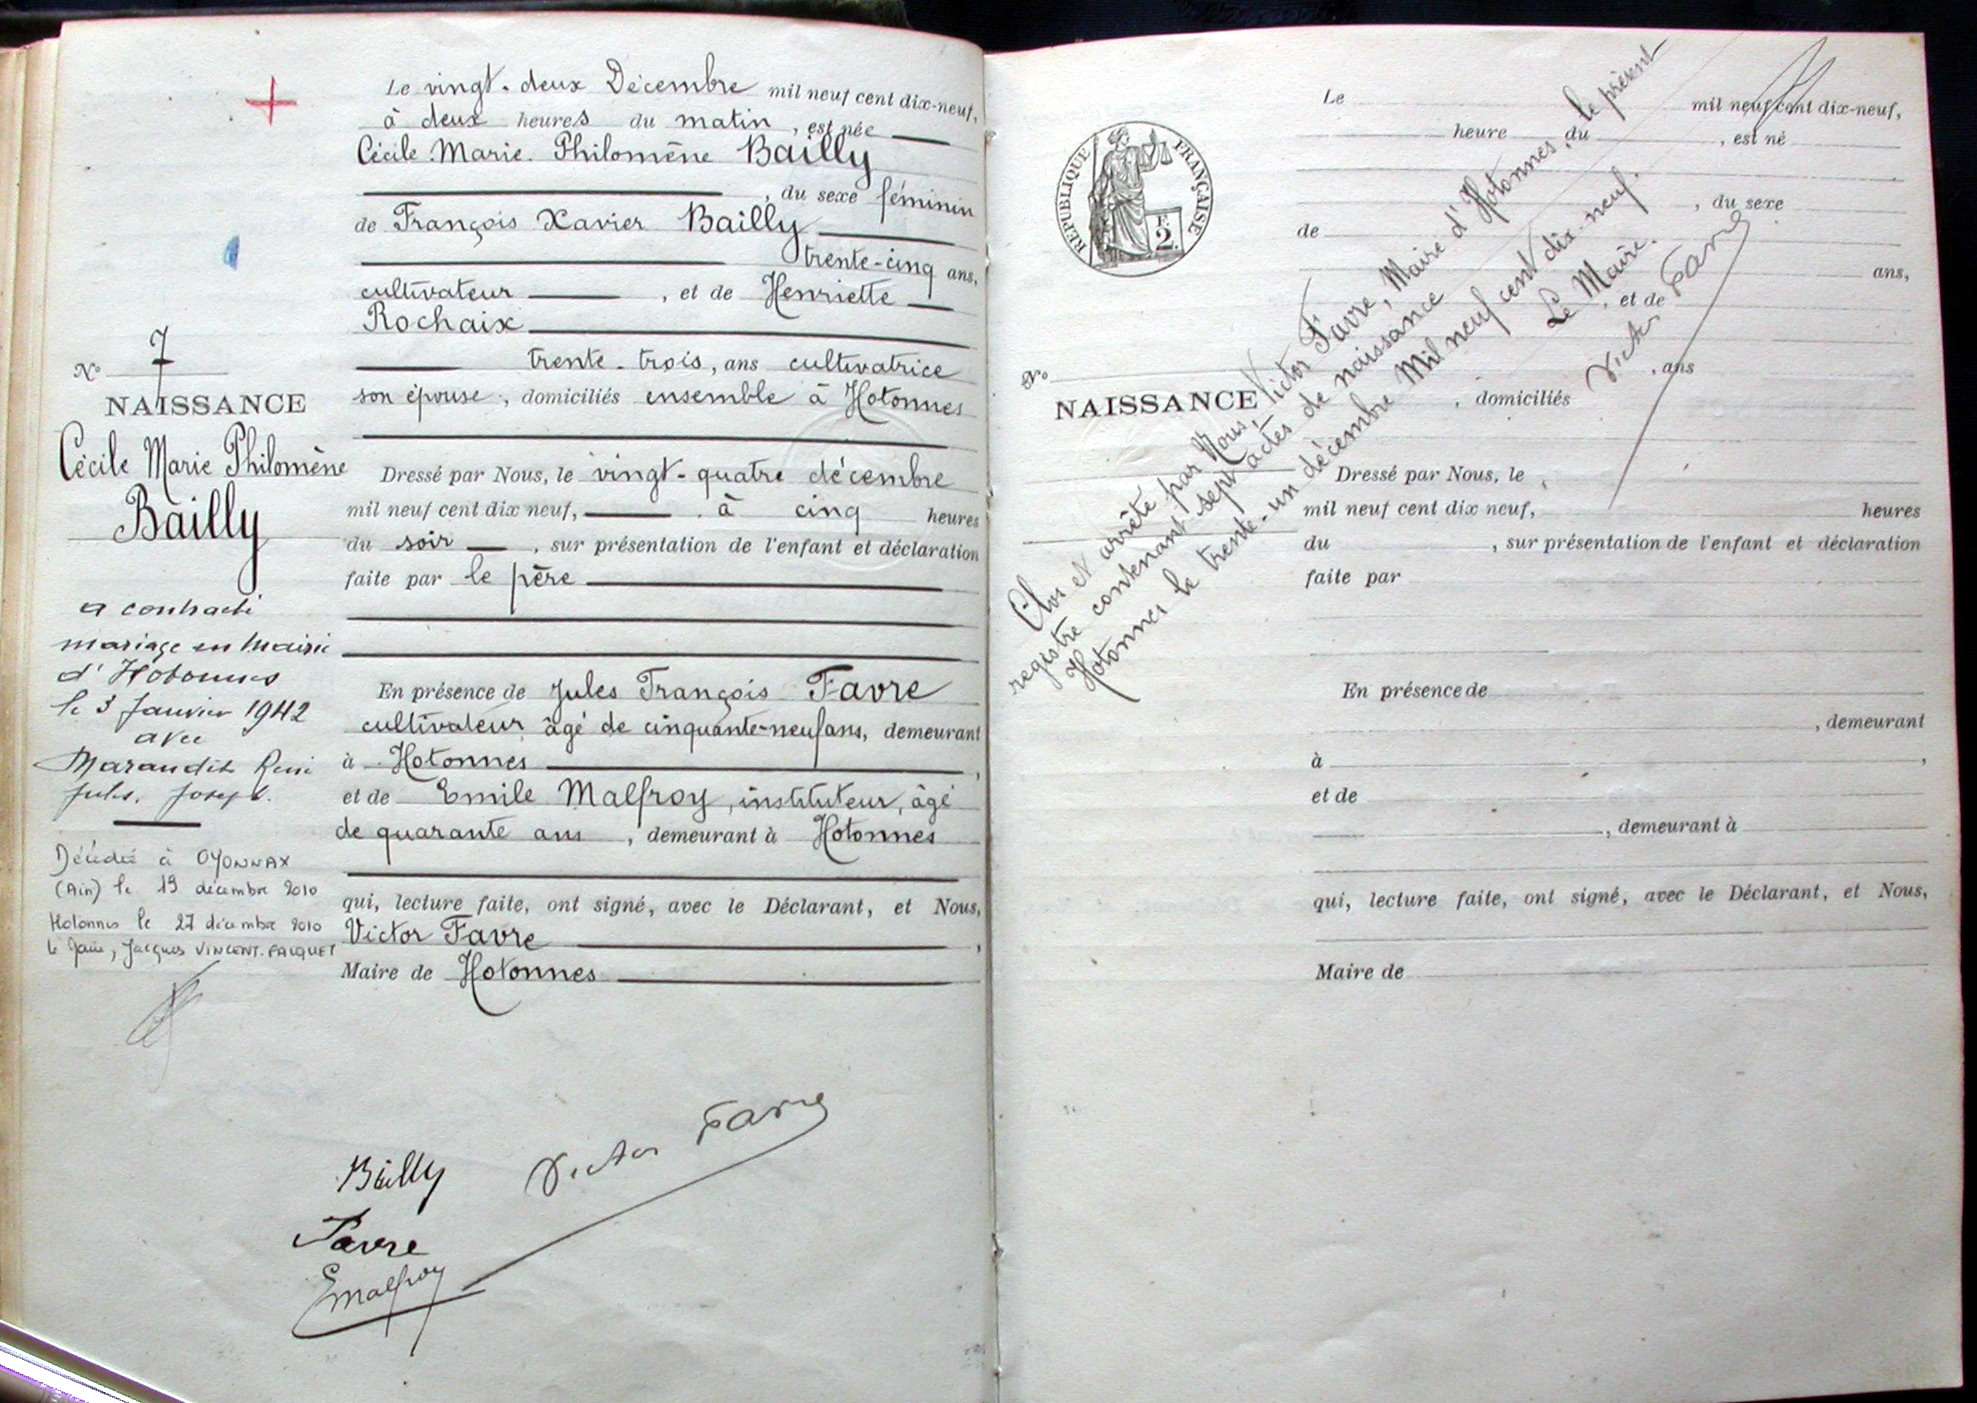 Le vingt-deux Décembre mil neuf cent dix-neuf,
à deux heures du matin, est née
Cécile Marie Philomène Bailly
, du sexe féminin
de François Xavier Bailly
trente-cinq ans,
cultivateur , et de Henriette
Rochaix
trente-trois, ans cultivatrice
son épouse, domiciliés ensemble à Hotonnes
Dressé par Nous, le vingt-quatre décembre
mil neuf cent dix neuf, à cinq heures
du soir , sur présentation de l'enfant et déclaration
faite par le père
En présence de Jules François Favre
cultivateur âgé de cinquante-neuf ans, demeurant
à Hotonnes ,
et de Emile Malfroy, instituteur, âgé
de quarante ans , demeurant à Hotonnes
qui, lecture faite, ont signé, avec le Déclarant, et Nous,
Victor Favre ,
Maire de Hotonnes
Nº 7
NAISSANCE
Cécile Marie Philomène
Bailly
a contracté
mariage en Mairie
d'Hotonnes
le 3 Janvier 1942
avec
Marandet René
Jules, Joseph.
Décédée à OYONNAX
(Ain) le 19 décembre 2010
Hotonnes le 27 décembre 2010
le Maire, Jacques VINCENT-FALQUET
Bailly
Victor Favre
Favre
E Malfroy
RÉPUBLIQUE FRANÇAISE
E
2
Nº
NAISSANCE
Le mil neuf cent dix-neuf,
heure du , est né
, du sexe
de
ans,
, et de
, ans
, domiciliés
Dressé par Nous, le
mil neuf cent dix neuf, heures
du , sur présentation de l'enfant et déclaration
faite par
En présence de
, demeurant
à ,
et de
, demeurant à
qui, lecture faite, ont signé, avec le Déclarant, et Nous,
Maire de
Clos et arrêté par Nous, Victor Favre, Maire d'Hotonnes, le présent
registre contenant sept actes de naissance
Hotonnes le trente-un décembre Mil neuf cent dix-neuf.
Le Maire.
Victor Favre